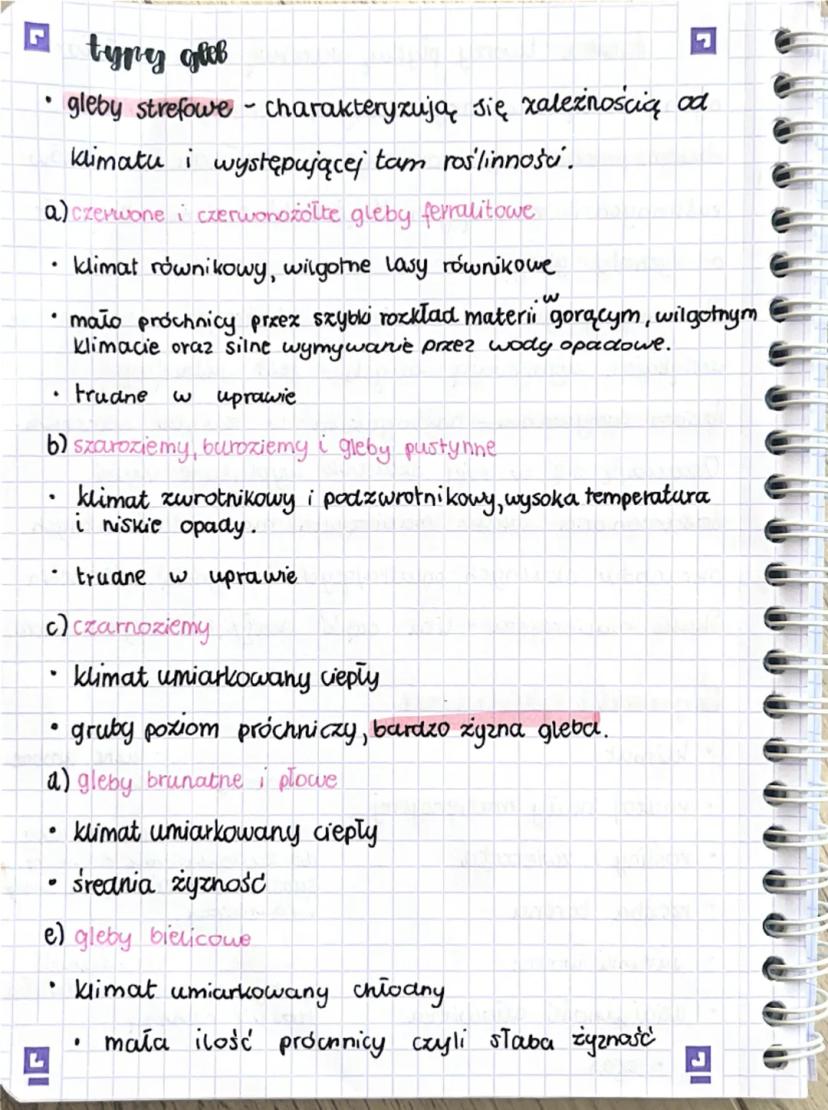 typy gleb
• gleby strefowe - charakteryzują się zależnością od
klimatu i występującej tam roślinności.
a) czerwone i czerwonożółte gleby ferralitowe
• klimat równikowy, wilgotne lasy równikowe
• mało próchnicy przez szybki rozkład materii w gorącym, wilgotnym
klimacie oraz silne wymywanie przez wody opadowe.
• trudne w uprawie
b) szaroziemy, buroziemy i gleby pustynne
• klimat zwrotnikowy i podzwrotnikowy, wysoka temperatura
i niskie opady.
• trudne w uprawie
c) czarnoziemy
• klimat umiarkowany ciepły
• gruby poziom próchniczy, bardzo żyzna gleba.
d) gleby brunatne i płowe
• klimat umiarkowany ciepły
• średnia żyzność
e) gleby bielicowe
• klimat umiarkowany chłodny
• mała ilość próchnicy czyli słaba żyzność